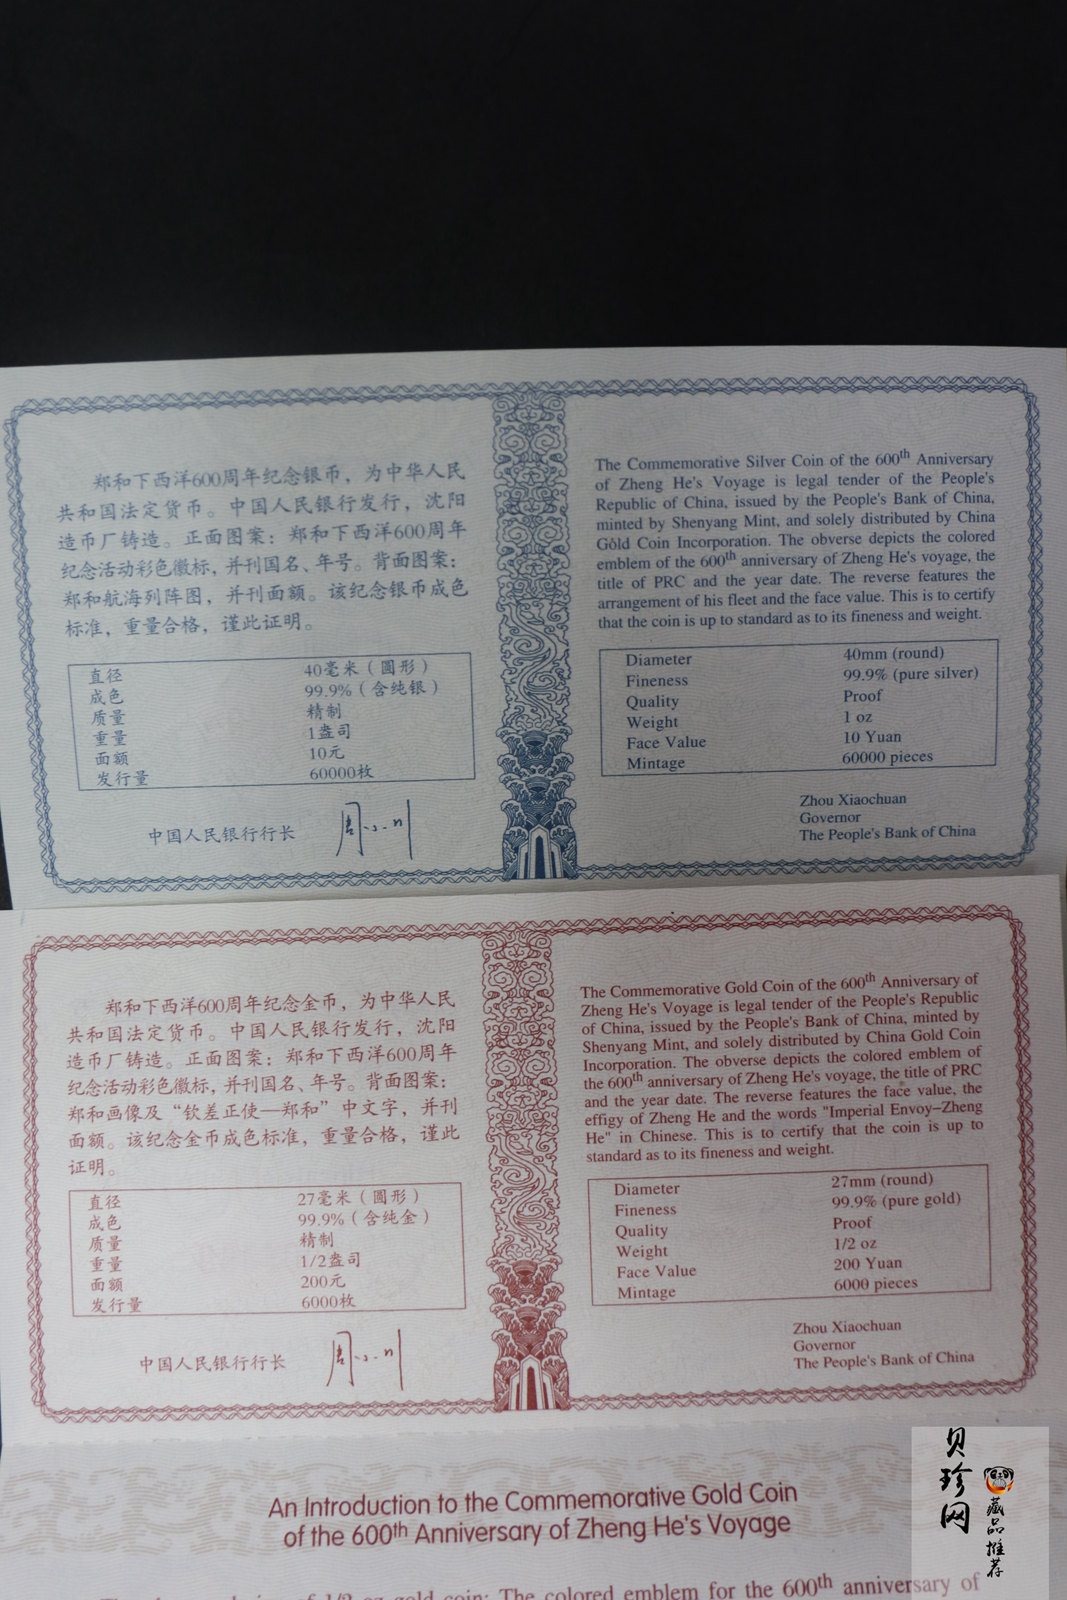 郑和下西洋600周年纪念银币，为中华人民
共和国法定货币。中国人民银行发行，沈阳
造币厂铸造。正面图案：郑和下西洋600周年
纪念活动彩色徽标，并刊国名、年号。背面图案：
郑和航海列阵图，并刊面额。该纪念银币成色
标准，重量合格，谨此证明。
直径 40毫米（圆形）
成色 99.9%（含纯银）
质量 精制
重量 1盎司
面额 10元
发行量 60000枚
中国人民银行行长 周小川
The Commemorative Silver Coin of the 600th Anniversary
of Zheng He's Voyage is legal tender of the People's
Republic of China, issued by the People's Bank of China,
minted by Shenyang Mint, and solely distributed by China
Gold Coin Incorporation. The obverse depicts the colored
emblem of the 600th anniversary of Zheng He's voyage, the
title of PRC and the year date. The reverse features the
arrangement of his fleet and the face value. This is to certify
that the coin is up to standard as to its fineness and weight.
Diameter 40mm (round)
Fineness 99.9% (pure silver)
Quality Proof
Weight 1 oz
Face Value 10 Yuan
Mintage 60000 pieces
Zhou Xiaochuan
Governor
The People's Bank of China
郑和下西洋600周年纪念金币，为中华人民
共和国法定货币。中国人民银行发行，沈阳
造币厂铸造。正面图案：郑和下西洋600周年
纪念活动彩色徽标，并刊国名、年号。背面图案：
郑和画像及“钦差正使—郑和”中文字，并刊
面额。该纪念金币成色标准，重量合格，谨此
证明。
直径 27毫米（圆形）
成色 99.9%（含纯金）
质量 精制
重量 1/2盎司
面额 200元
发行量 6000枚
中国人民银行行长 周小川
The Commemorative Gold Coin of the 600th Anniversary of
Zheng He's Voyage is legal tender of the People's Republic
of China, issued by the People's Bank of China, minted by
Shenyang Mint, and solely distributed by China Gold Coin
Incorporation. The obverse depicts the colored emblem of
the 600th anniversary of Zheng He's voyage, the title of PRC
and the year date. The reverse features the face value, the
effigy of Zheng He and the words "Imperial Envoy–Zheng
He" in Chinese. This is to certify that the coin is up to
standard as to its fineness and weight.
Diameter 27mm (round)
Fineness 99.9% (pure gold)
Quality Proof
Weight 1/2 oz
Face Value 200 Yuan
Mintage 6000 pieces
Zhou Xiaochuan
Governor
The People's Bank of China
An Introduction to the Commemorative Gold Coin
of the 600th Anniversary of Zheng He's Voyage
of 1/2 oz gold coin: The colored emblem for the 600th anniversary of
贝珍网
藏品推荐